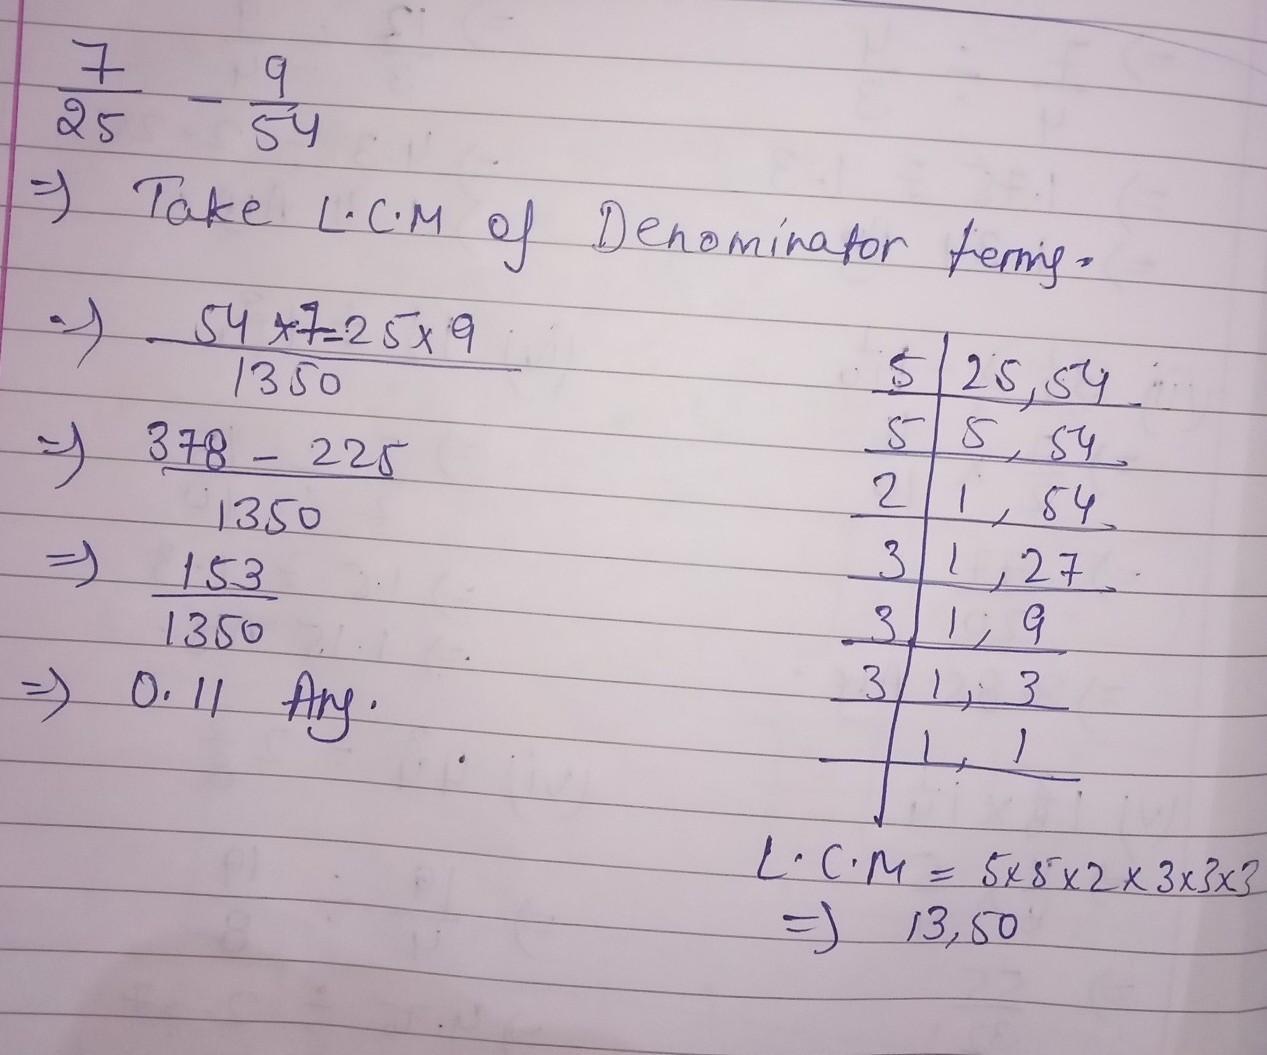 7/25 - 9/54
=) Take L.C.M of Denominator terms.
=) 54 x 7 - 25 x 9
1350
=) 378 - 225
1350
=) 153
1350
=) 0.11 Ans.
5 | 25, 54
5 | 5, 54
2 | 1, 54
3 | 1, 27
3 | 1, 9
3 | 1, 3
1, 1
L.C.M = 5x5x2x3x3x3
=) 13,50